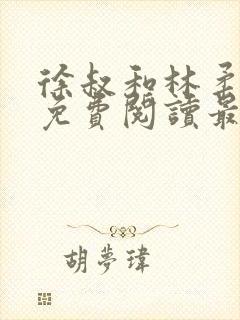 徐叔和林柔
免費閱讀最
胡夢瑋